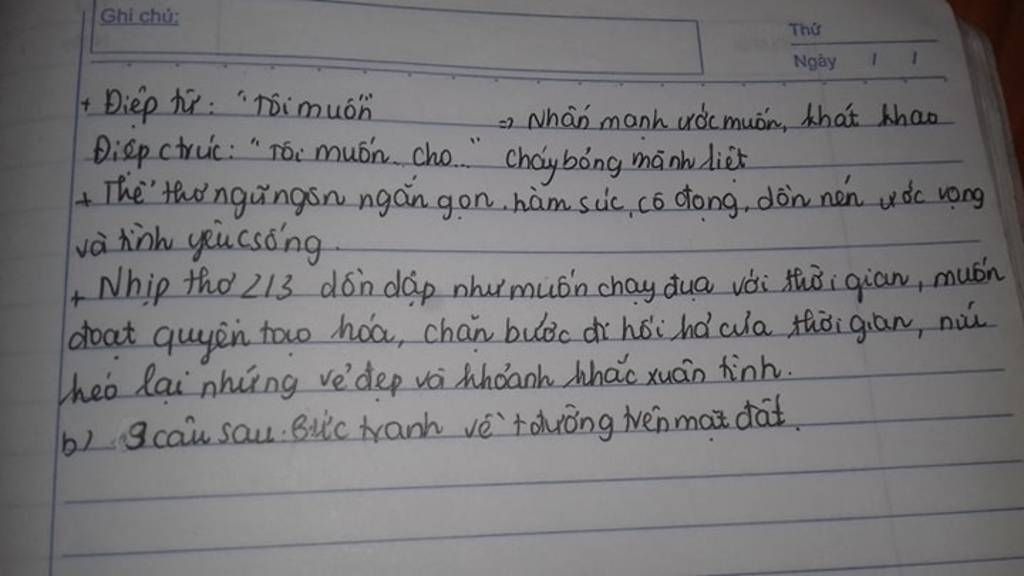 Ghi chú:
Thứ
Ngày / /
+ Điệp từ: "Tôi muốn" => Nhấn mạnh ước muốn, khát khao
Điệp ctrúc: "Tôi muốn cho..." cháy bỏng mãnh liệt
+ Thể thơ ngũ ngôn ngắn gọn, hàm súc, cô đọng, dồn nén ước vọng
và tình yêu csống.
+ Nhịp thơ 2/3 dồn dập như muốn chạy đua với thời gian, muốn
đoạt quyền tạo hóa, chặn bước đi hối hả của thời gian, níu
kéo lại những vẻ đẹp và khoảnh khắc xuân tình.
b) 9 câu sau: Bức tranh về tđường trên mặt đất.